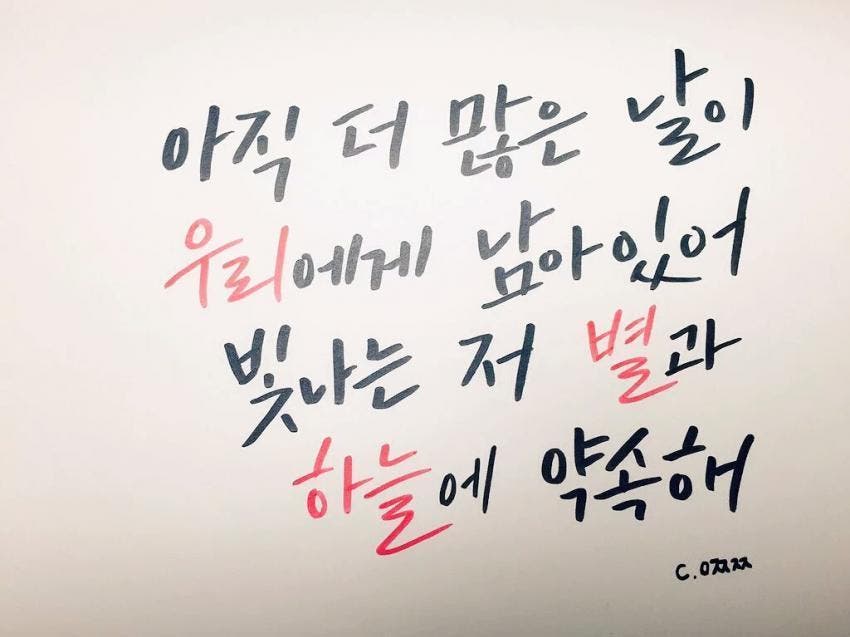 아직 더 많은 날이
우리에게 남아있어
빛나는 저 별과
하늘에 약속해